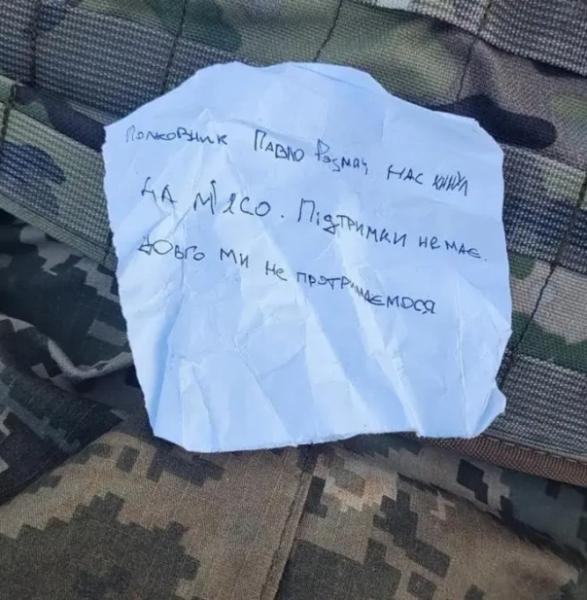 Полковник Павло Розлач нас кинул
НА М'ЯСО. Підтримки немає.
Довго ми не протримаємося